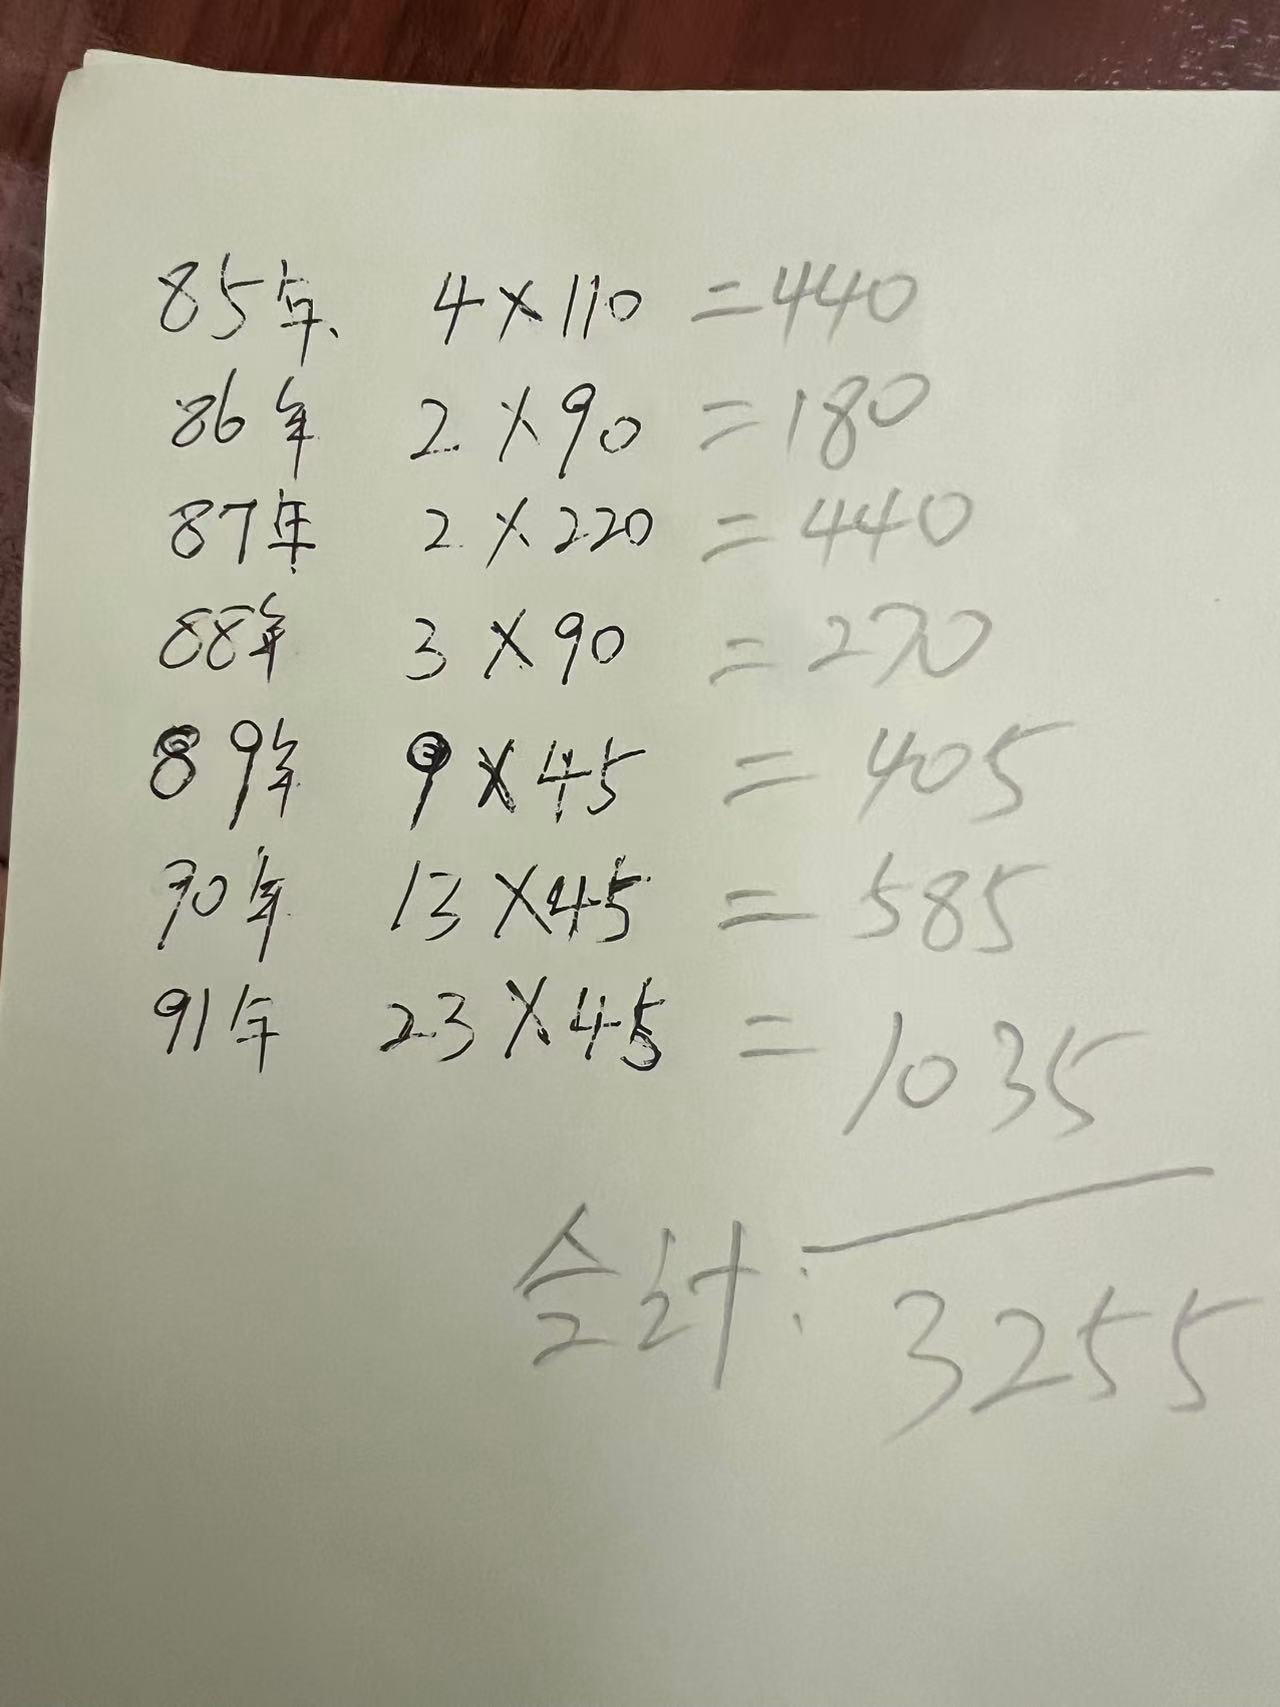 85年、 4×110 =440
86年 2×90 =180
87年 2×220 =440
88年 3×90 =270
89年 9×45 =405
90年 13×45 =585
91年 23×45 =1035
合计: 3255